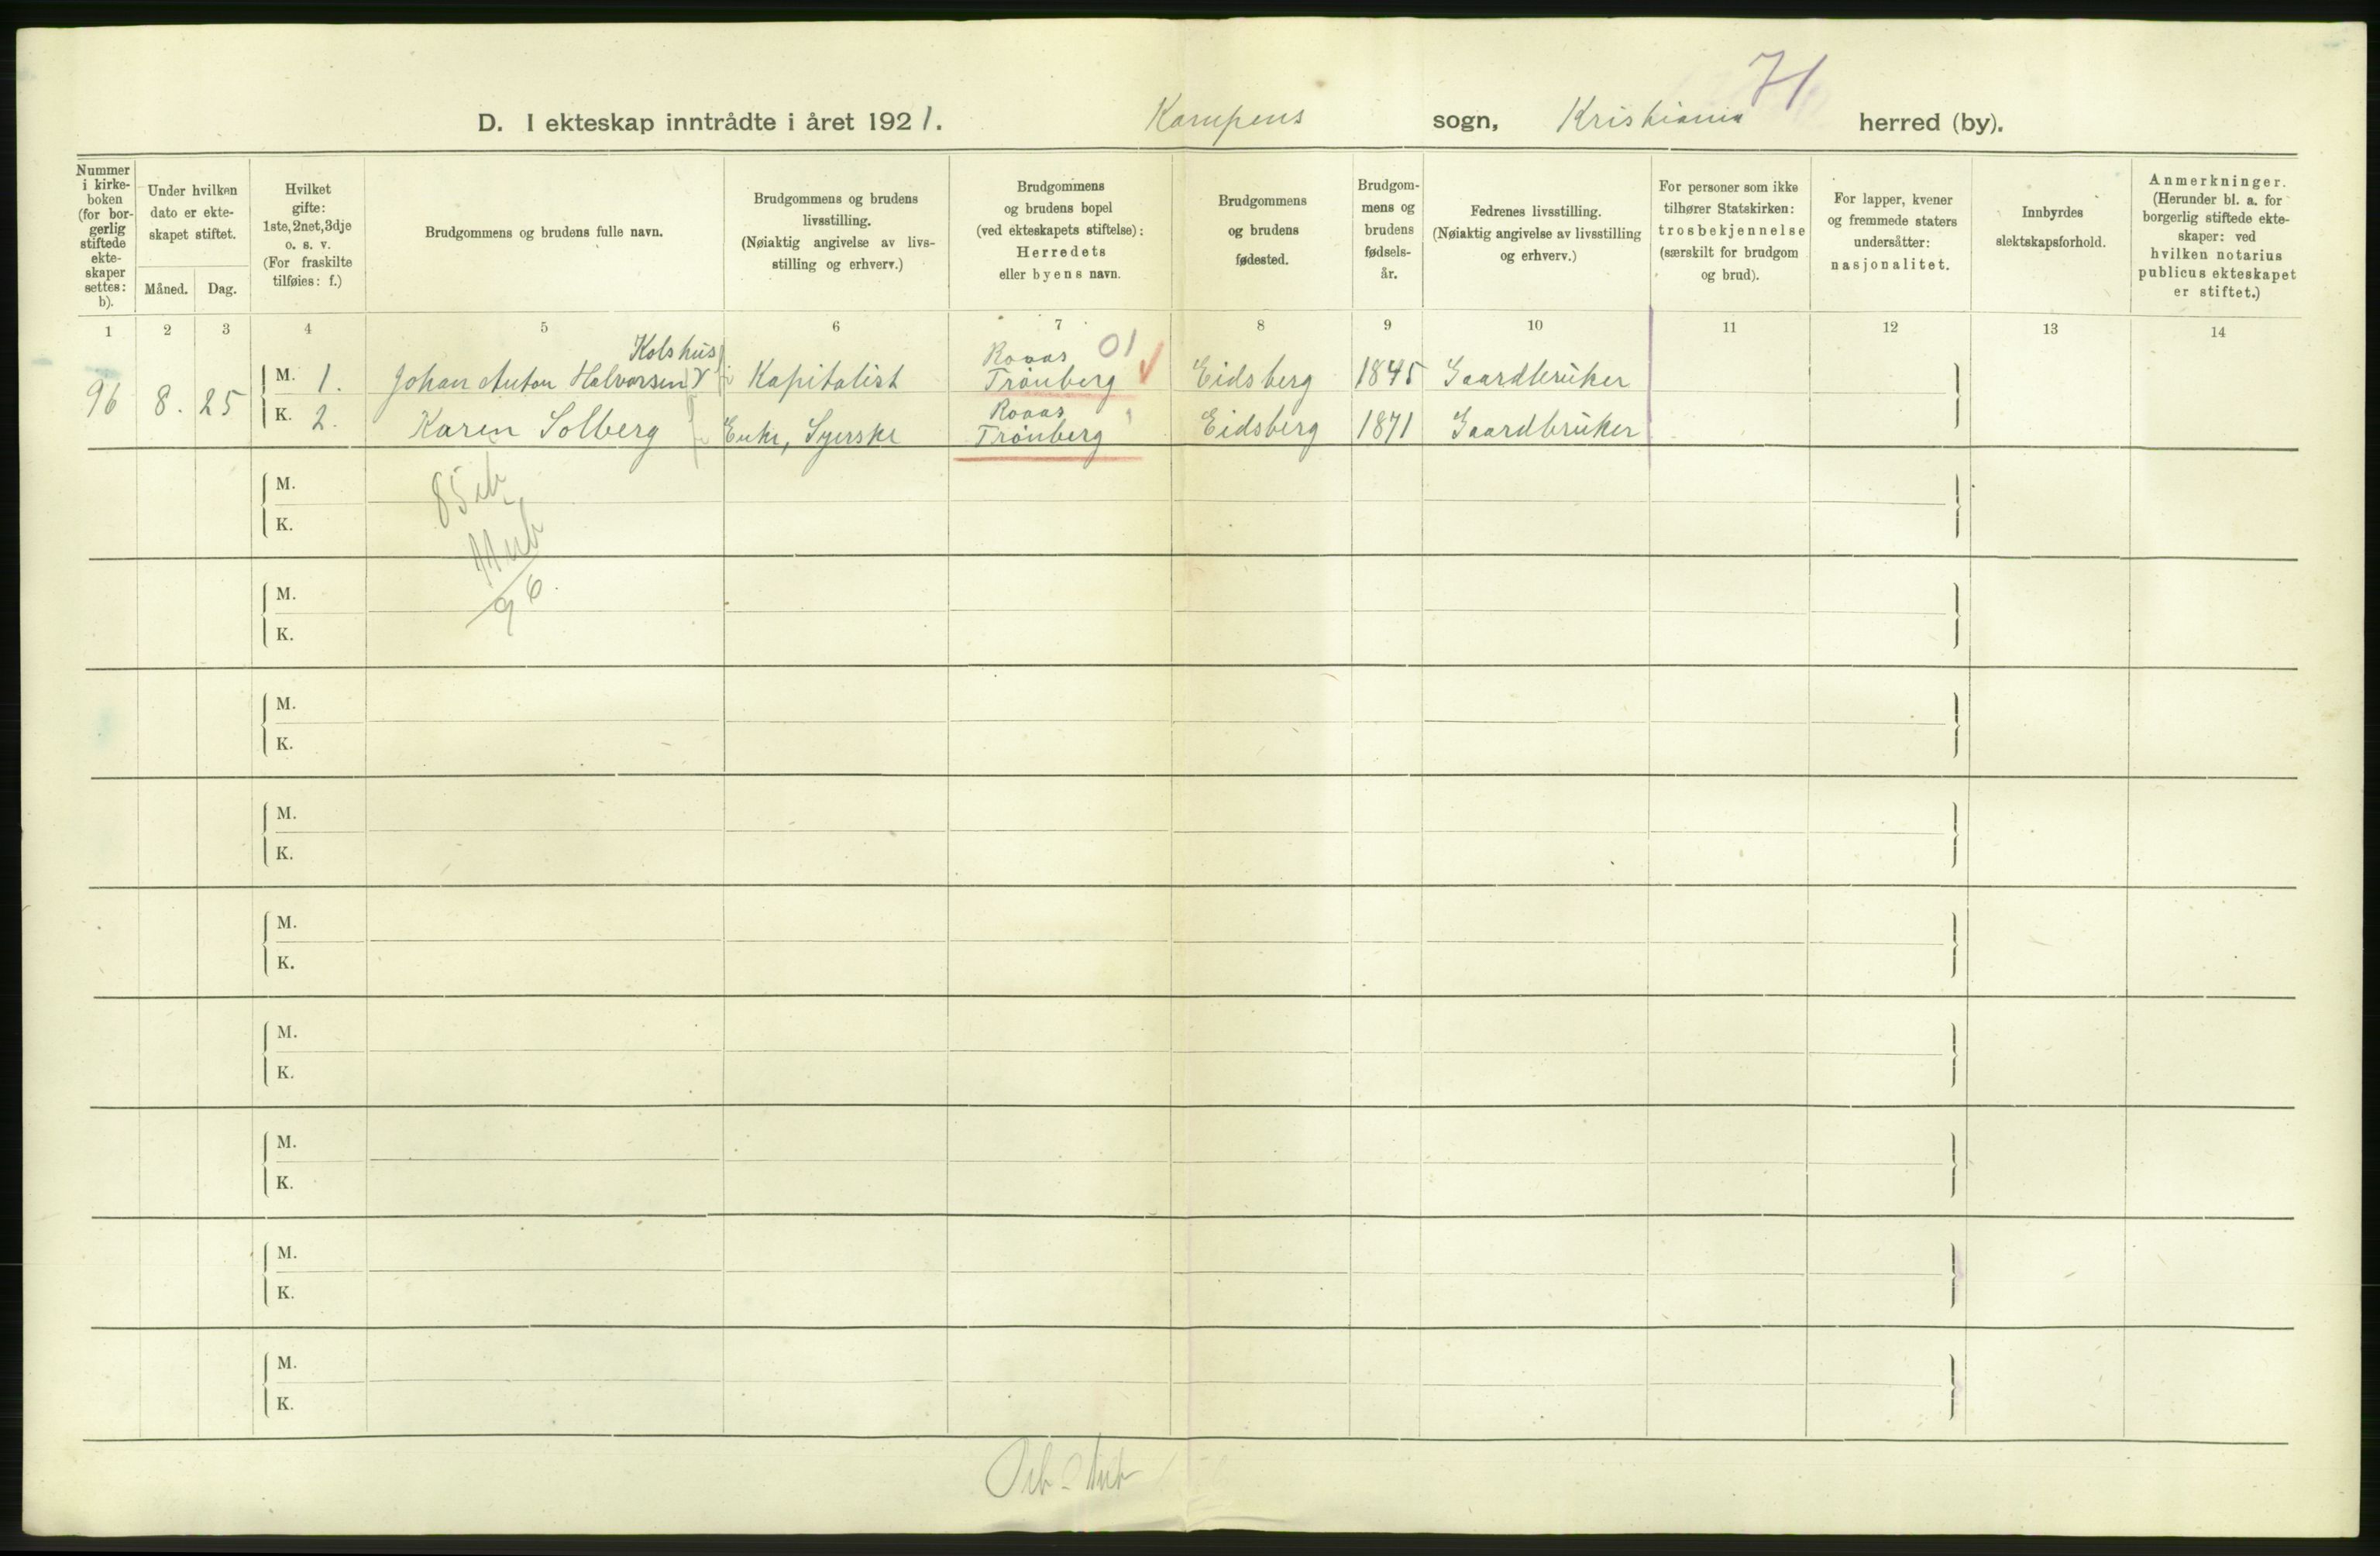 71
D. I ekteskap inntrådte i året 1921. Kampens sogn, Kristiania herred (by).
Nummer i kirke-boken (for bor-gerlig stiftede ekte-skaper settes: b).
Under hvilken dato er ekte-skapet stiftet.
Måned. Dag.
Hvilket gifte: 1ste, 2net, 3dje o. s. v. (For fraskilte tilføies: f.)
Brudgommens og brudens fulle navn.
Brudgommens og brudens livsstilling. (Nøiaktig angivelse av livs-stilling og erhverv.)
Brudgommens og brudens bopel (ved ekteskapets stiftelse): Herredets eller byens navn.
Brudgommens og brudens fødested.
Brudgom-mens og brudens fødsels-år.
Fedrenes livsstilling. (Nøiaktig angivelse av livsstilling og erhverv.)
For personer som ikke tilhører Statskirken: trosbekjennelse (særskilt for brudgom og brud).
For lapper, kvener og fremmede staters undersåtter: nasjonalitet.
Innbyrdes slektskapsforhold.
Anmerkninger. (Herunder bl. a. for borgerlig stiftede ekte-skaper: ved hvilken notarius publicus ekteskapet er stiftet.)
1 2 3 4 5 6 7 8 9 10 11 12 13 14
Kolshus Roaas 01
96 8. 25 M. 1. Johan Anton Halvorsen Kapitalist Trönberg Eidsberg 1845 Gaardbruker
Roaas
K. 2. Karen Solberg Enke, Syerske Trönberg Eidsberg 1871 Gaardbruker
M.
K.
96
M.
K.
M.
K.
M.
K.
M.
K.
M.
K.
M.
K.
M.
K.
M.
K.